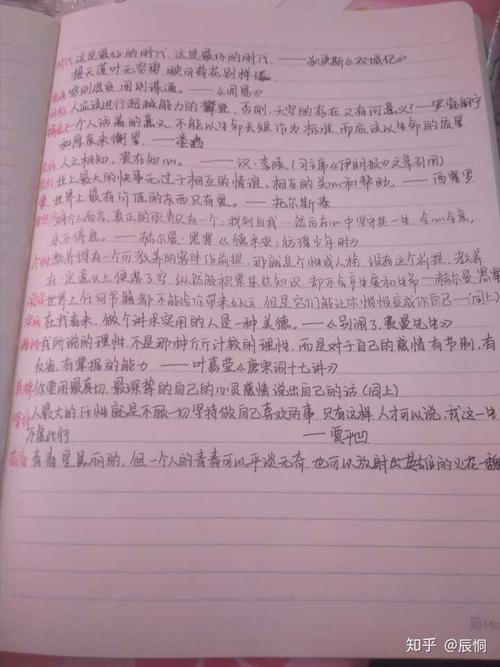 时代 这是最好的时代,这是最坏的时代。——狄更斯《双城记》
接天莲叶无穷碧,映日荷花别样红。
穷则变,变则通。——《周易》
人应该进行超越能力的攀登,否则,天空的存在又有何意义?——罗伯特·勃朗宁
一个人活着的意义,不能以生命长短作为标准,而应该以生命的质量
和厚度来衡量。
人之相知,贵在知心。——汉·李陵
世上最大的快事无过于相互的情谊,相互的关心和帮助。——西塞罗
世界上最有价值的东西只有爱。——托尔斯泰
对每个人而言,真正的职责只有一个:找到自我……然后在心中坚守其一生,全心全意,
永不停息。——赫尔曼·黑塞《德米安:彷徨少年时》
个性教养得有一个可教养的客体作前提,那就是个性或人格,没有这个前提,教养
在一定意义上便落了空,纵然能积累某些知识,却不会产生爱和生命——赫尔曼·黑塞
阅读 世界上任何书籍都不能给你带来好运,但是它们能让你悄悄变成你自己——(同上)
在我看来,做个讲求实用的人是一种美德。——《别闹了,费曼先生》
理性 我所说的理性,不是那种斤斤计较的理性,而是对于自己的感情有节制,有
反省,有掌握的能力——叶嘉莹《唐宋词十七讲》
真挚 你要用最真切,最深挚的自己的心灵感情说出自己的话(同上)
坚持 人最大的任性就是不顾一切坚持做自己喜欢的事,只有这样,人才可以说,我这一生
不虚此行。——贾平凹
青春 青春是美丽的,但一个人的青春可以平淡无奇,也可以放射出英雄的火花——魏
知乎 @辰恫